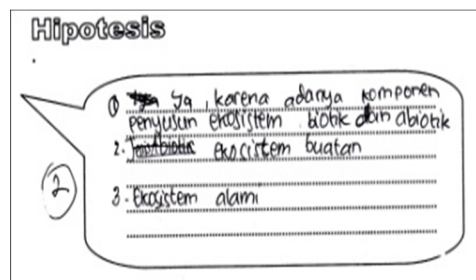 Hipotesis
① Ya, karena adanya komponen
penyusun ekosistem biotik dan abiotik
2. ekosistem buatan
3. Ekosistem alami
②